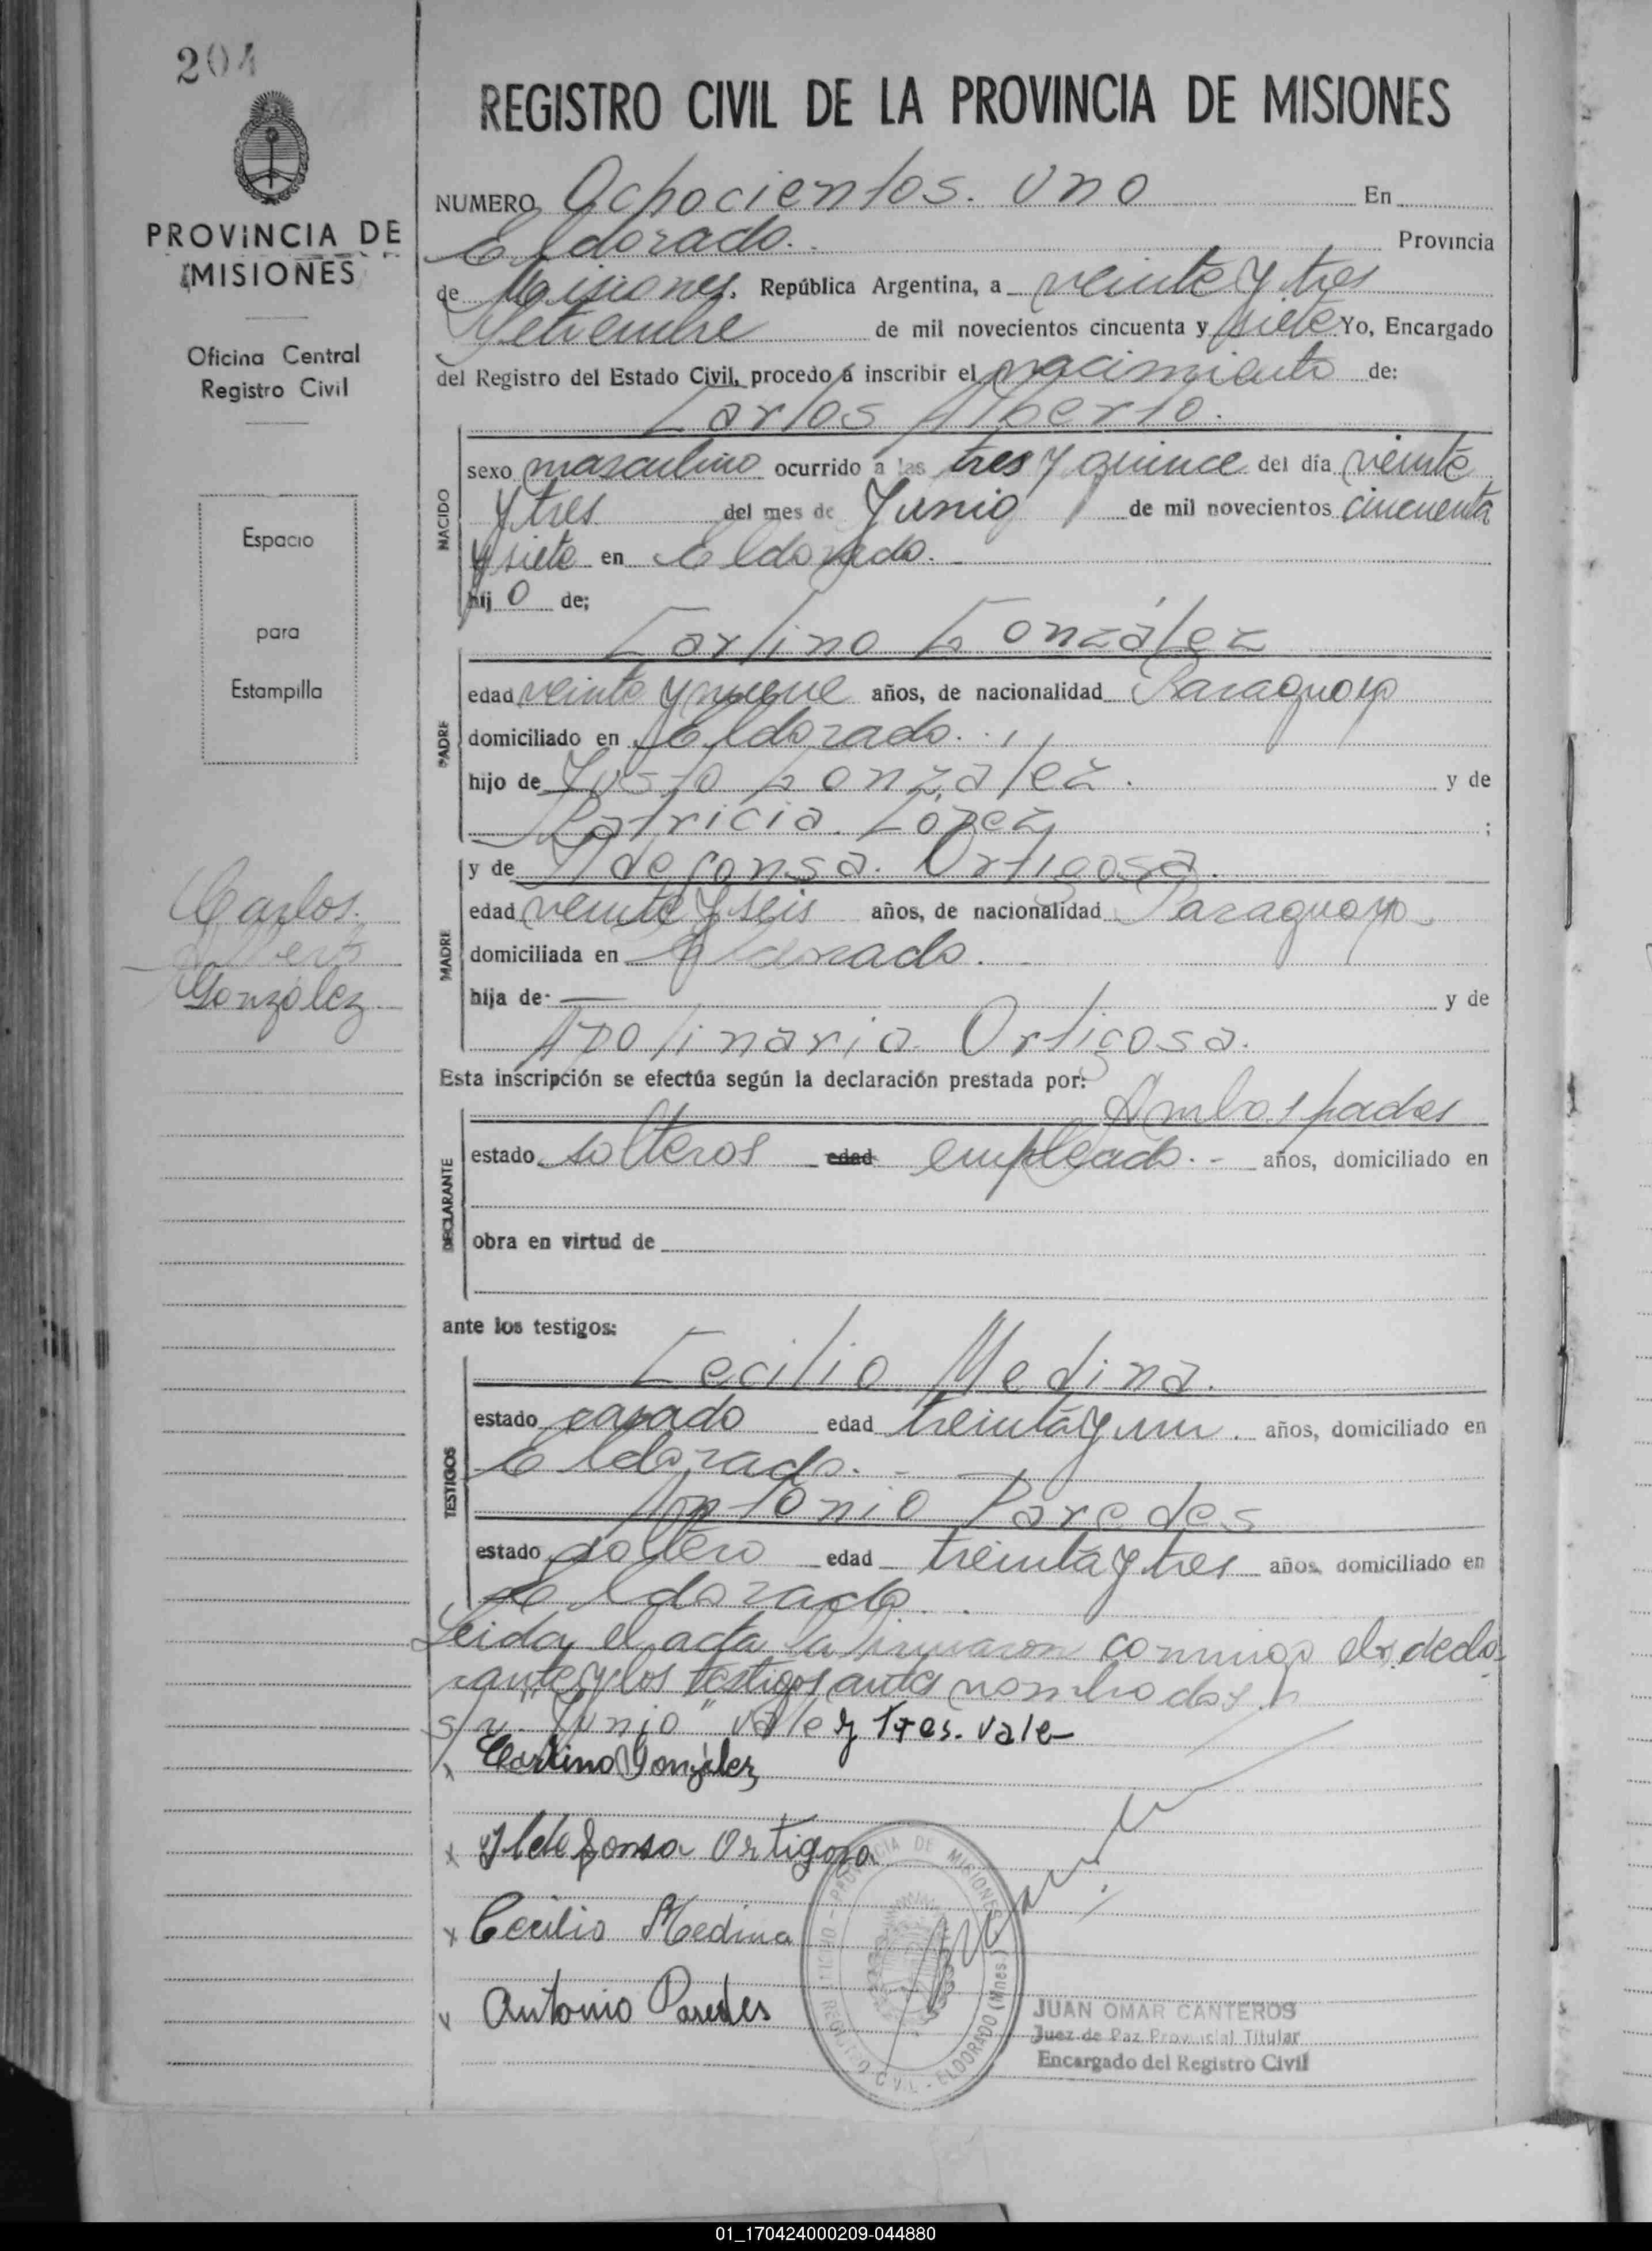 204
PROVINCIA DE
MISIONES
Oficina Central
Registro Civil
Espacio
para
Estampilla
Carlos
Alberto
González
REGISTRO CIVIL DE LA PROVINCIA DE MISIONES
NUMERO Ochocientos. Uno En
Eldorado. Provincia
de Misiones. República Argentina, a veinte y tres
Setiembre de mil novecientos cincuenta y siete Yo, Encargado
del Registro del Estado Civil, procedo á inscribir el nacimiento de:
Carlos Alberto.
NACIDO
sexo masculino ocurrido a las tres y quince del día veinte
y tres del mes de Junio de mil novecientos cincuenta
y siete en Eldorado.
hij o de;
Carlino González
PADRE
edad veinte y nueve años, de nacionalidad Paraguayo
domiciliado en Eldorado.
hijo de Justo González. y de
Patricia López ;
MADRE
y de Ildefonsa. Ortigosa.
edad veinte y seis años, de nacionalidad Paraguayo
domiciliada en Eldorado.
hija de- — y de
Apolinaria Ortigosa.
Esta inscripción se efectúa según la declaración prestada por:
Ambos padres
DECLARANTE
estado solteros edad empleado. - años, domiciliado en
obra en virtud de
ante los testigos:
Cecilio Medina.
TESTIGOS
estado casado edad treinta y un. años, domiciliado en
Eldorado. -
Antonio Paredes
estado soltero edad treinta y tres años, domiciliado en
Eldorado.
Leida el acta la firmaron conmigo els decla
rante y los testigos antes nombrados.
s/r. "Junio" vale y tres. vale
x Carlino González
x Ildefonsa Ortigosa
x Cecilio Medina
x Antonio Paredes
PROVINCIA DE MISIONES
REGISTRO CIVIL - ELDORADO (Mnes.)
JUAN OMAR CANTEROS
Juez de Paz Provincial Titular
Encargado del Registro Civil
01_170424000209-044880